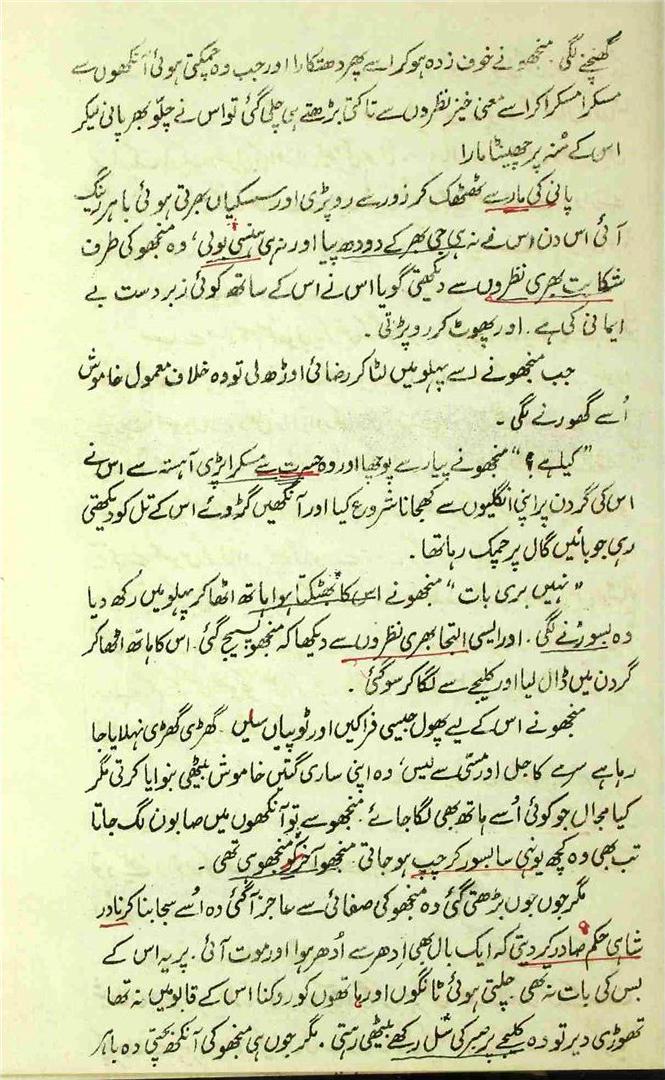 گھنچنے لگی۔ منجھو نے خوف زدہ ہو کر اسے پھر دھتکارا اور جب وہ چمکتی ہوئی آنکھوں سے
مسکرا مسکرا کر اسے معنی خیز نظروں سے تاکتی بڑھتے ہی چلی گئی تو اس نے چلّو بھر پانی لیکر
اس کے منہ پر چھینٹا مارا
پانی کی مار سے ٹھٹھک کر زور سے رو پڑی اور سسکیاں بھرتی ہوئی باہر رینگ
آئی اس دن اس نے نہ ہی جی بھر کے دودھ پیا اور نہ ہی ہنسی بولی، وہ منجھو کی طرف
شکایت بھری نظروں سے دیکھتی گویا اس نے اس کے ساتھ کوئی زبردست بے
ایمانی کی ہے۔ اور پھوٹ کر رو پڑتی۔
جب منجھو نے اسے پہلو میں لٹا کر رضائی اوڑھ لی تو وہ خلاف معمول خاموش
اُسے گھورنے لگی۔
”کیا ہے؟“ منجھو نے پیار سے پوچھا اور وہ حسرت سے مسکرا پڑی آہستہ سے اس نے
اس کی گردن پر اپنی انگلیوں سے کھجانا شروع کیا اور آنکھیں گڑوئے اس کے تل کو دیکھتی
رہی جو بائیں گال پر چمک رہا تھا۔
”نہیں بری بات“ منجھو نے اس کا بھٹکتا ہوا ہاتھ اٹھا کر پہلو میں رکھ دیا
وہ بسورنے لگی۔ اور ایسی التجا بھری نظروں سے دیکھا کہ منجھو پسیج گئی۔ اس کا ہاتھ اٹھا کر
گردن میں ڈال لیا اور کلیجے سے لگا کر سو گئی۔
منجھو نے اس کے لیے پھول جیسی فراکیں اور ٹوپیاں سلیں۔ گھڑی گھڑی نہلایا جا
رہا ہے سرمے کاجل اور مسّی سے لیس، وہ اپنی ساری گتیں خاموش بیٹھی بنوایا کرتی مگر
کیا مجال جو کوئی اُسے ہاتھ بھی لگا جائے۔ منجھو سے تو آنکھوں میں صابون لگ جاتا
تب بھی وہ کچھ یونہی سا بسور کر چپ ہو جاتی۔ منجھو آخر کو منجھو ہی تھی۔
مگر جوں جوں بڑھتی گئی وہ منجھو کی صفائی سے عاجز آ گئی وہ اُسے سجا بنا کر نادر
شاہی حکم صادر کر دیتی کہ ایک بال بھی اِدھر سے اُدھر ہوا اور موت آئی۔ پر یہ اس کے
بس کی بات نہ تھی۔ چلتی ہوئی ٹانگوں اور ہاتھوں کو روکنا اس کے قالو میں نہ تھا
تھوڑی دیر تو وہ کلیجے پر صبر کی سل رکھے بیٹھی رہتی۔ مگر جوں ہی منجھو کی آنکھ بچتی وہ باہر